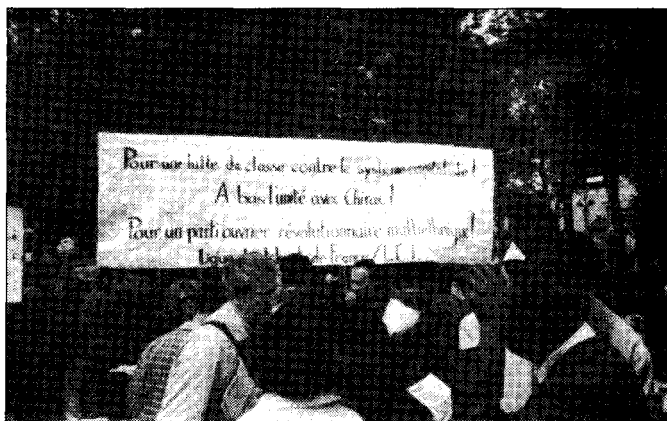 Pour une lutte de classe contre le système capitaliste!
A bas l'unité avec Chirac!
Pour un parti ouvrier révolutionnaire multiethnique!
Ligue de France